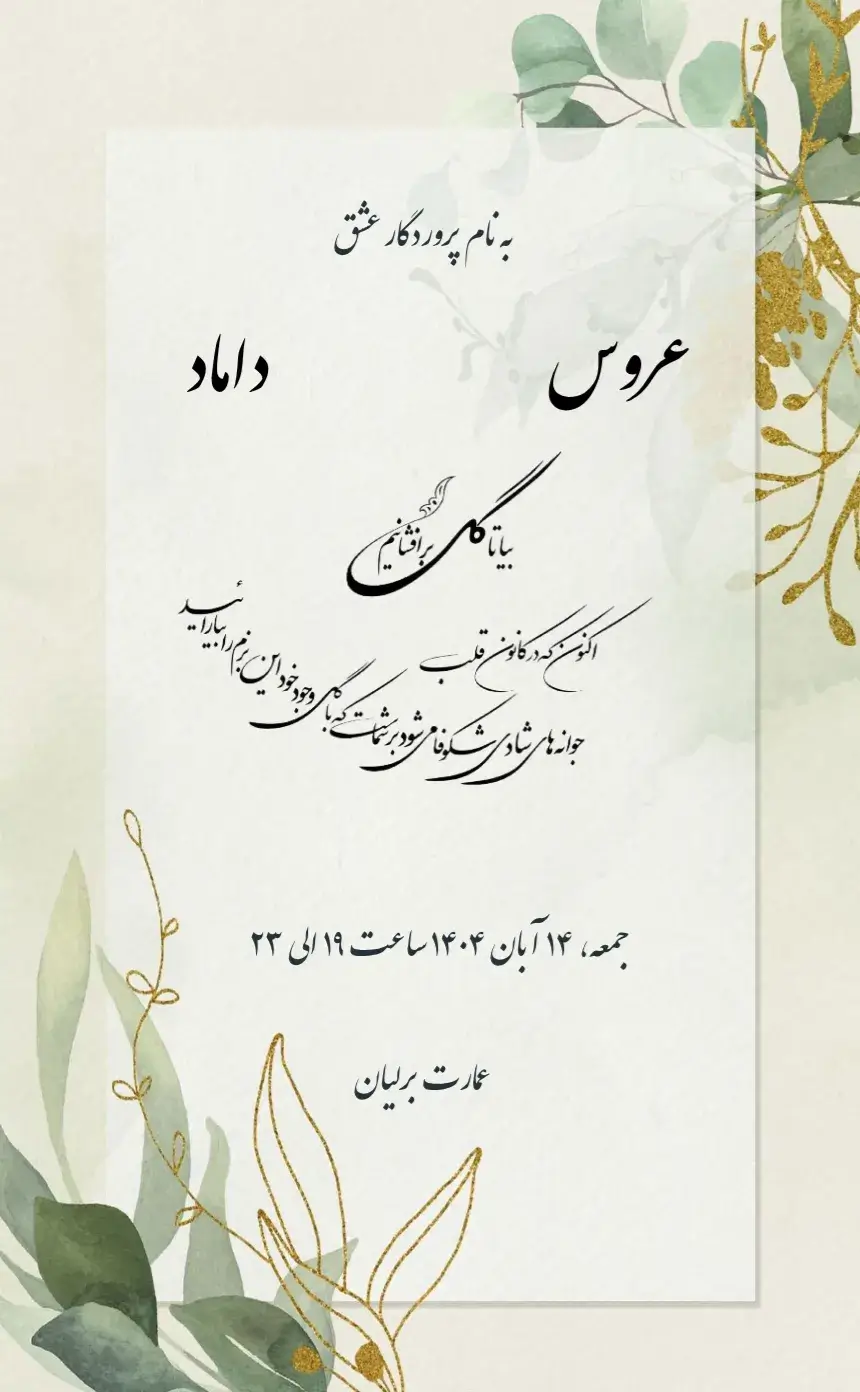 به نام پروردگار عشق
عروس داماد
بیا تا گل برافشانیم
اکنون که در کانون قلب
جوانه های شادی شکوفا می شود بر شماست که با گل وجود خود این بزم را بیارائید
جمعه، ۱۴ آبان ۱۴۰۴ ساعت ۱۹ الی ۲۳
عمارت برلیان